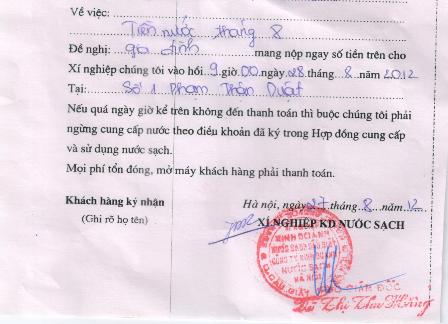 Về việc:
Tiền nước tháng 8
Đề nghị: gia đình mang nộp ngay số tiền trên cho
Xí nghiệp chúng tôi vào hồi 9 giờ 00 ngày 28 tháng 8 năm 2012
Tại: Số 1 Phạm Thận Duật
Nếu quá ngày giờ kể trên không đến thanh toán thì buộc chúng tôi phải
ngừng cung cấp nước theo điều khoản đã ký trong Hợp đồng cung cấp
và sử dụng nước sạch.
Mọi phí tổn đóng, mở máy khách hàng phải thanh toán.
Khách hàng ký nhận
(Ghi rõ họ tên)
Hà nội, ngày 27 tháng 8 năm 12
XÍ NGHIỆP KD NƯỚC SẠCH
KINH DOANH
NƯỚC SẠCH
HÀ NỘI
GIÁM ĐỐC
Thị Thu Hồng